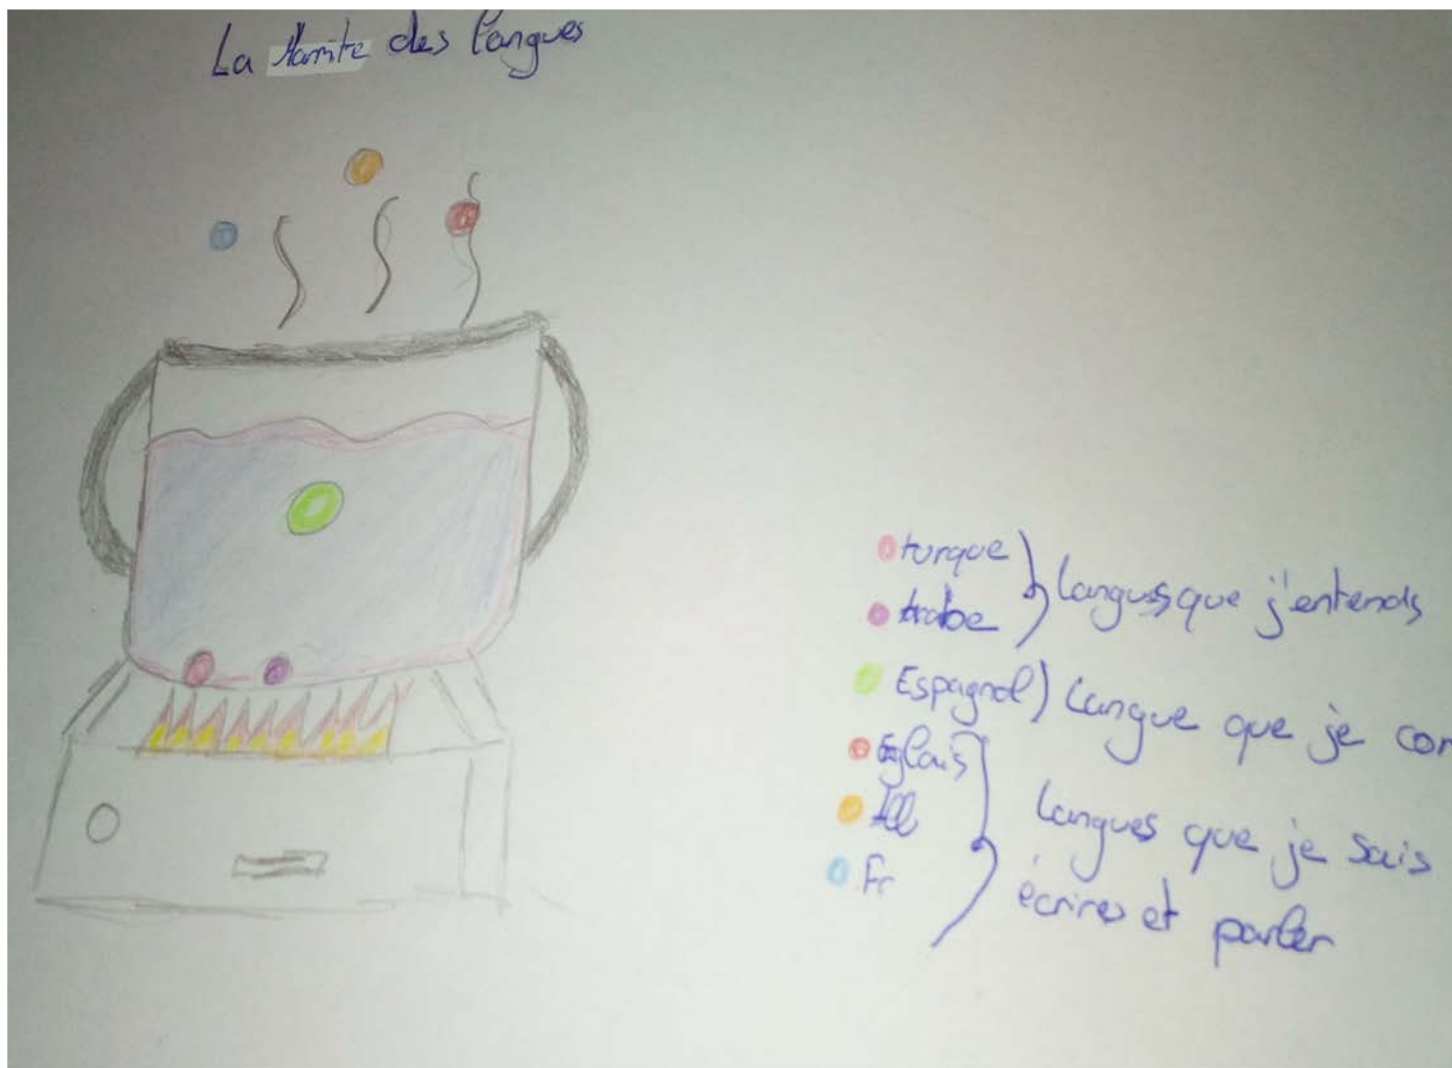 La Marmite des langues
turque
Arabe
langues que j'entends
Espagnol) Langue que je com
Englais
All
Fr
Langues que je sais
écrires et parler